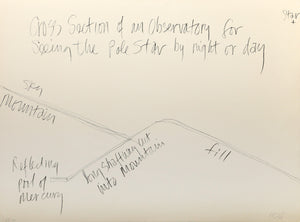 Cross Section of an Observatory for
Seeing the Pole Star by night or day
Star
Sky
Mountain
Reflecting
pool of
mercury
long shaftway cut
into Mountain
fill